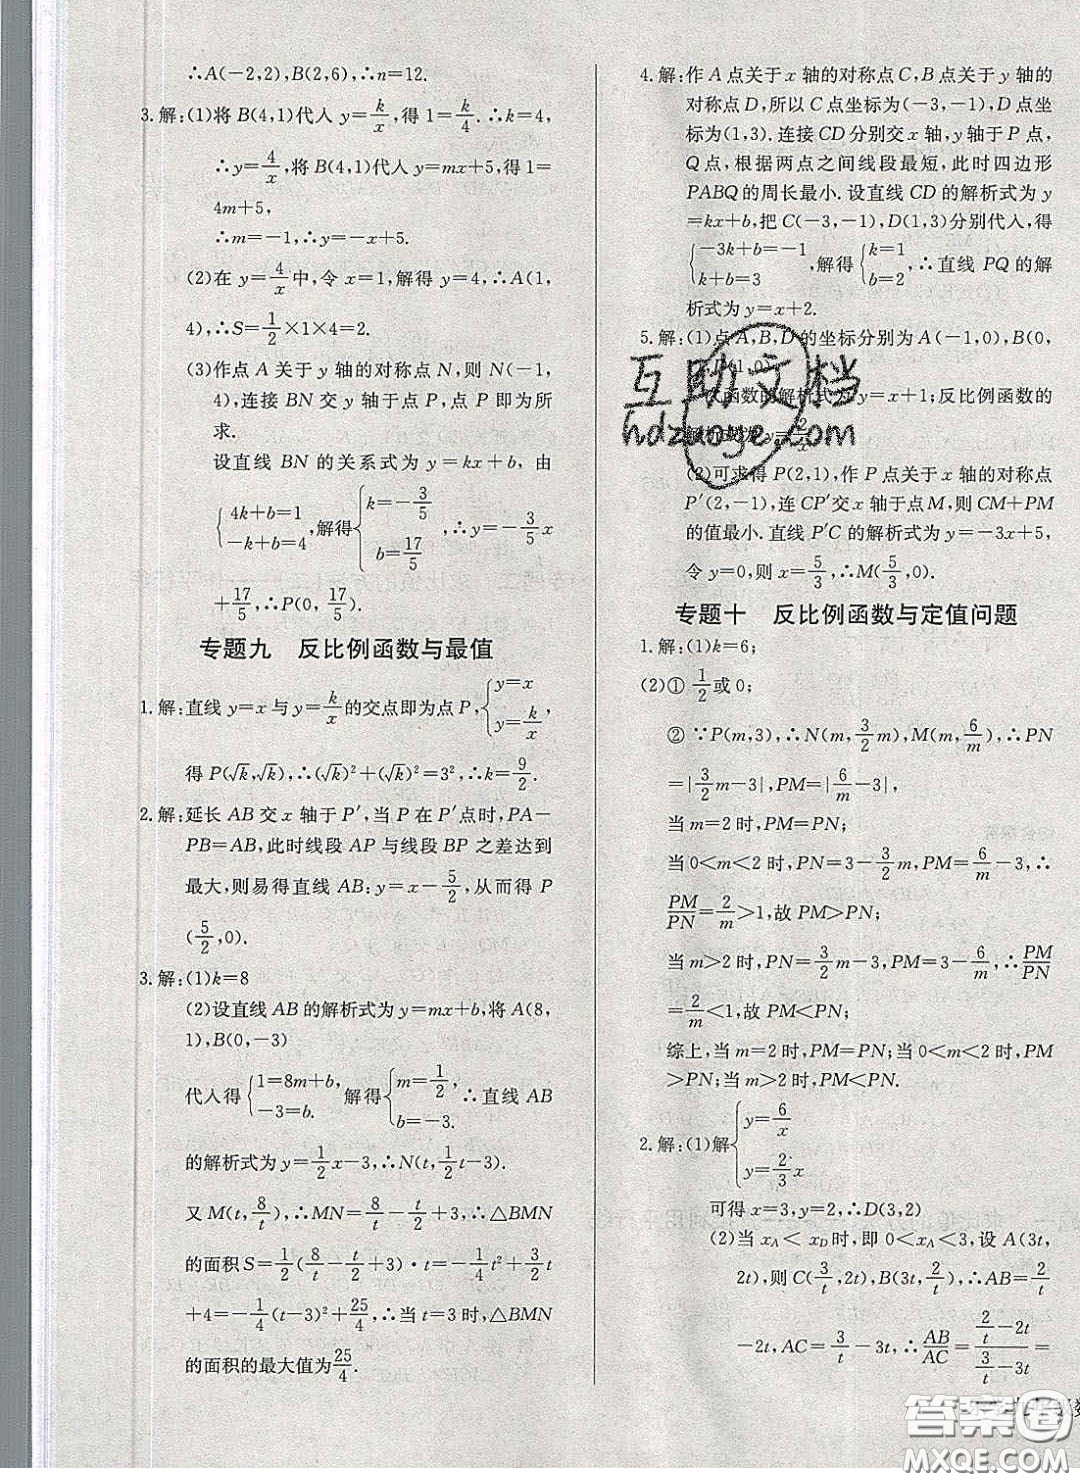 ∴A(-2,2),B(2,6),∴n=12.
3.解:(1)将 B(4,1)代人 y=k/x,得 1=k/4.∴k=4,
∴y=4/x,将 B(4,1)代人 y=mx+5,得 1=
4m+5,
∴m=-1,∴y=-x+5.
(2)在 y=4/x中,令 x=1,解得 y=4,∴A(1,
4),∴S=1/2×1×4=2.
(3)作点 A 关于 y 轴的对称点 N,则 N(-1,
4),连接 BN交 y 轴于点 P,点 P 即为所
求.
设直线 BN 的关系式为 y=kx+b,由
{4k+b=1 -k+b=4,解得{k=-3/5 b=17/5,∴y=-3/5x
+17/5,∴P(0,17/5).
专题九 反比例函数与最值
1.解:直线 y=x 与 y=k/x的交点即为点 P,{y=x y=k/x,
得 P(√k,√k),∴(√k)²+(√k)²=3²,∴k=9/2.
2.解:延长 AB 交 x 轴于 P′,当 P 在 P′点时,PA-
PB=AB,此时线段 AP 与线段 BP 之差达到
最大,则易得直线 AB:y=x-5/2,从而得 P
(5/2,0).
3.解:(1)k=8
(2)设直线 AB 的解析式为 y=mx+b,将 A(8,
1),B(0,-3)
代人得{1=8m+b, -3=b. 解得{m=1/2, b=-3. ∴直线 AB
的解析式为 y=1/2x-3,∴N(t,1/2t-3).
又 M(t,8/t),∴MN=8/t-t/2+3,∴△BMN
的面积 S=1/2(8/t-t/2+3)·t=-1/4t²+3/2t
+4=-1/4(t-3)²+25/4,∴当 t=3 时,△BMN
的面积的最大值为25/4.
4.解:作 A 点关于 x 轴的对称点 C,B 点关于 y 轴的
对称点 D,所以 C 点坐标为(-3,-1),D 点坐
标为(1,3).连接 CD 分别交 x 轴,y 轴于 P 点,
Q 点,根据两点之间线段最短,此时四边形
PABQ 的周长最小.设直线 CD 的解析式为 y
=kx+b,把 C(-3,-1),D(1,3)分别代人,得
{-3k+b=-1 k+b=3,解得{k=1 b=2,∴直线 PQ 的解
析式为 y=x+2.
5.解:(1)点 A,B,D 的坐标分别为 A(-1,0),B(0,
D(1,0)
函数的解析式为 y=x+1;反比例函数的
y=2/x
(2)可求得 P(2,1),作 P 点关于 x 轴的对称点
P′(2,-1),连 CP′交 x 轴于点 M,则 CM+PM
的值最小.直线 P′C 的解析式为 y=-3x+5,
令 y=0,则 x=5/3,∴M(5/3,0).
专题十 反比例函数与定值问题
1.解:(1)k=6;
(2)① 1/2或 0;
② ∵P(m,3),∴N(m,3/2m),M(m,6/m),∴PN
=|3/2m-3|,PM=|6/m-3|,
当 m=2 时,PM=PN;
当 0<m<2 时,PN=3-3/2m,PM=6/m-3,∴
PM/PN=2/m>1,故 PM>PN;
当 m>2 时,PN=3/2m-3,PM=3-6/m,∴PM/PN
=2/m<1,故 PM<PN;
综上,当 m=2 时,PM=PN;当 0<m<2 时,PM
>PN;当 m>2 时,PM<PN.
2.解:(1)解{y=6/x y=2/3x
可得 x=3,y=2,∴D(3,2)
(2)当 xA< xD时,即 0<xA<3,设 A(3t,
2t),则 C(3/t,2t),B(3t,2/t),∴AB=2/t
-2t,AC=3/t-3t,∴AB/AC=(2/t-2t)/(3/t-3t)=
互助文档
hdzuoye.com
答案圈
MXQE.COM